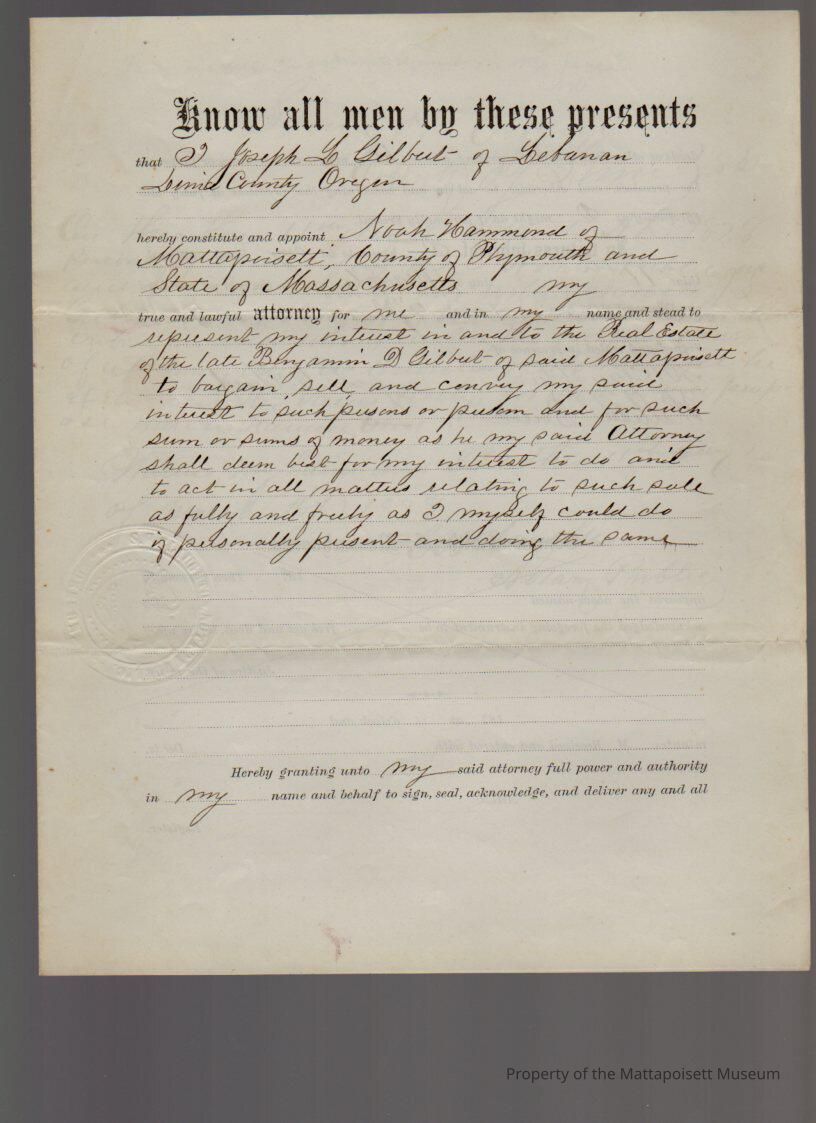 Know all men by these presents
that I Joseph L Gilbert of Lebanan
Linn County Oregon
hereby constitute and appoint Noah Hammond of
Mattapoisett, County of Plymouth and
State of Massachusetts my
true and lawful attorney for me and in my name and stead to
represent my interest in and to the Real Estate
of the late Benjamin D Gilbert of said Mattapoisett
to bargain, sell, and convey my said
interest to such persons or person and for such
sum or sums of money as he my said Attorney
shall deem best for my interest to do and
to act in all matters relating to such sale
as fully and freely as I myself could do
if personally present and doing the same
Hereby granting unto my said attorney full power and authority
in my name and behalf to sign, seal, acknowledge, and deliver any and all
Property of the Mattapoisett Museum